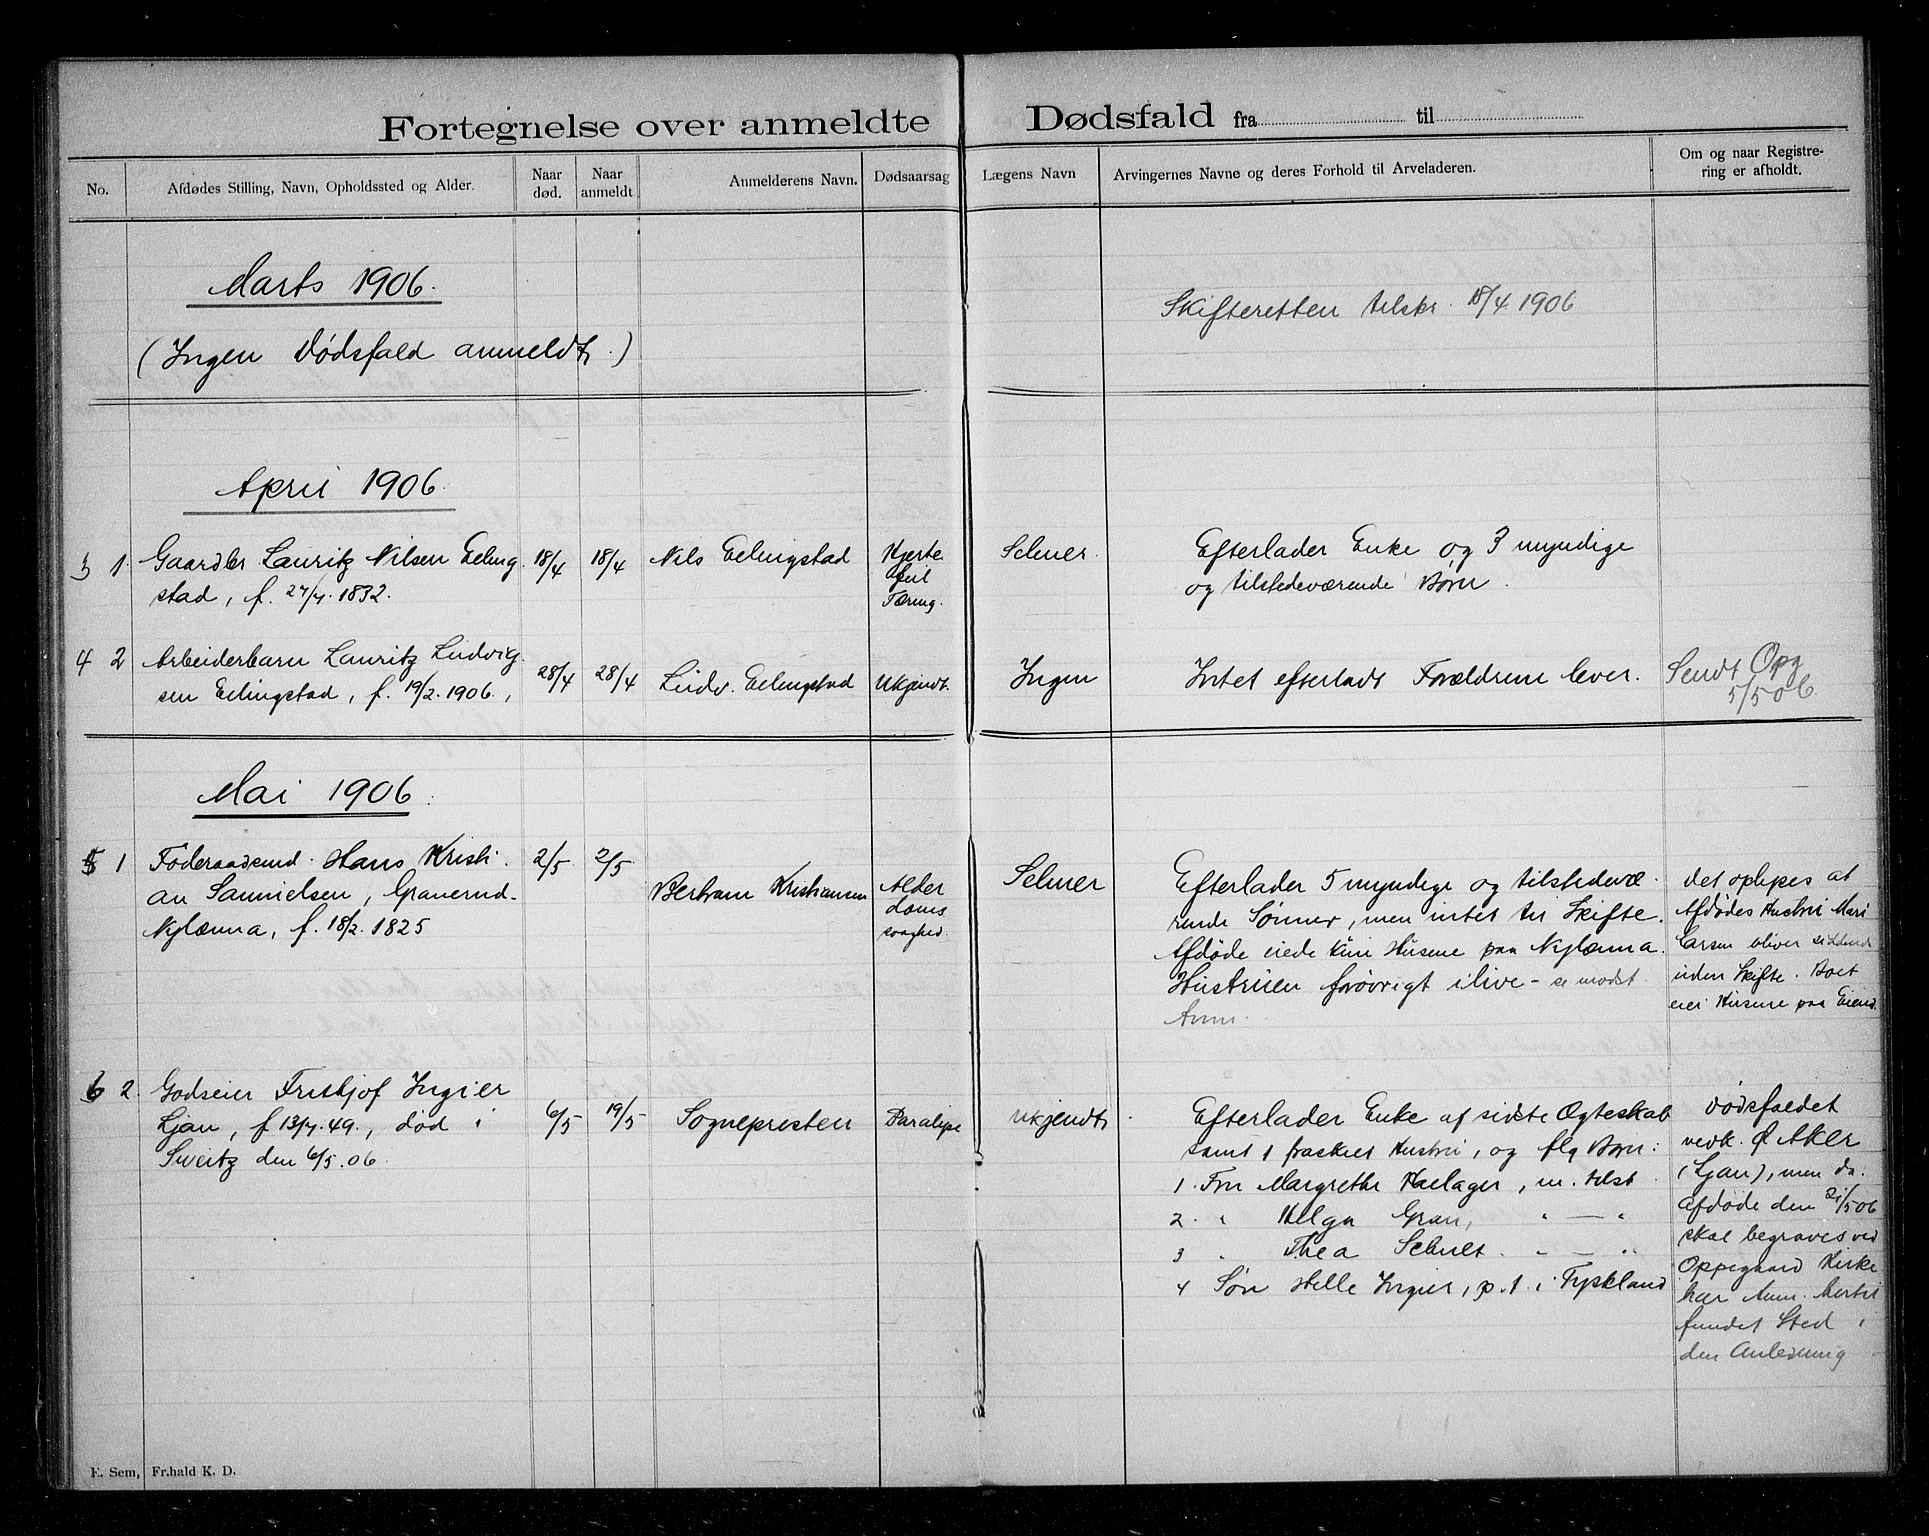 Fortegnelse over anmeldte Dødsfald fra til
No.
Afdødes Stilling, Navn, Opholdssted og Alder.
Naar død.
Naar anmeldt
Anmelderens Navn.
Dødsaarsag
Lægens Navn
Arvingernes Navne og deres Forhold til Arveladeren.
Om og naar Registre-
ring er afholdt.
Marts 1906.
(Ingen Dødsfald anmeldt.)
Skifteretten tilskr. 18/4 1906
April 1906.
3 1. Gaardbr Lauritz Nilsen Eeling
stad, f. 1832.
18/4
18/4
Nils Eelingstad
Hjerte
feil
Tæring.
Selmer.
Efterlader Enke og 3 myndige
og tilstedeværende Børn.
4 2 Arbeiderbarn Lauritz Ludvig
sen Eelingstad, f. 19/2. 1906.,
28/4
28/4
Ludv. Eelingstad
Ukjendt.
Ingen
Intet efterladt Forældrene lever.
Sendt Opg
5/5 06
Mai 1906.
5 1 Føderaadsmd. Hans Kristi
an Samuelsen, Graverud-
Nylænna, f. 18/2. 1825
2/5
2/5
Bertram Kristiansen
Alder
doms
svaghed.
Selmer
Efterlader 5 myndige og tilstedevæ
rende Sønner, men intet til Skifte.
Afdøde eiede kun Husene paa Nylænna.
Hustruen forøvrigt ilive - se modst.
Anm.
Det oplyses at
Afdødes Hustru Mari
Larsen bliver siddende
uden Skifte. Boet
eier Husene paa Eiend.
6 2. Godseier Frithjof Ingier
Ljan, f 13/7. 49., død i
Sweitz den 6/5. 06.
6/5
19/5
Sognepresten
Paralyse
Ukjendt.
Efterlader Enke af sidste Ægteskab
samt 1 fraskilt Hustru, og flg Børn:
1. Fru Margrethe Kaelager, m. tilst.
2. " Helga Gran, " — "
3 " Thea Schult. " — "
4 Søn Helle Ingier, p. t. i Tyskland
Dødsfaldet
vedk. Ø Aker
(Ljan), men da
Afdøde den 21/5 06
skal begraves ved
Oppegaard Kirke
har Anm. hertil
fundet Sted i
den Anledning
E. Sem, Fr.hald K. D.